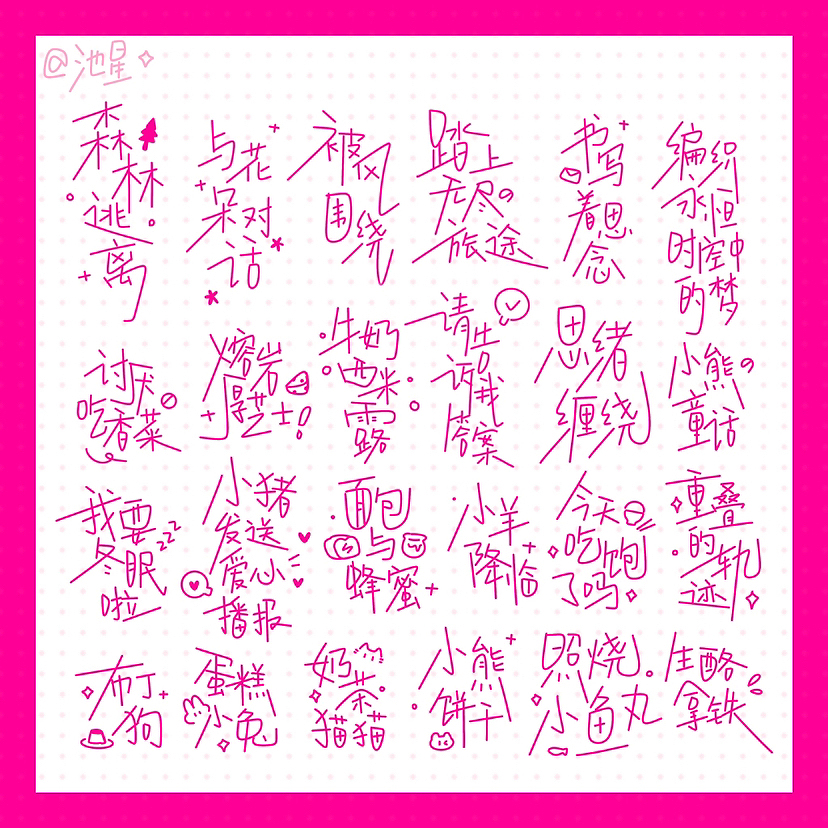 @池星
森林逃离
与花呆对话
被风围绕
踏上无尽旅途
书写着思念
编织永恒时空中的梦
讨厌吃香菜
熔岩芝士
牛奶西米露
请告诉我答案
思绪缠绕
小熊童话
我要冬眠啦
小猪发送爱心播报
面包与蜂蜜
小羊降临
今天吃饱了吗
重叠的轨迹
布丁狗
蛋糕小兔
奶茶猫猫
小熊饼干
照烧小鱼丸
生酪拿铁